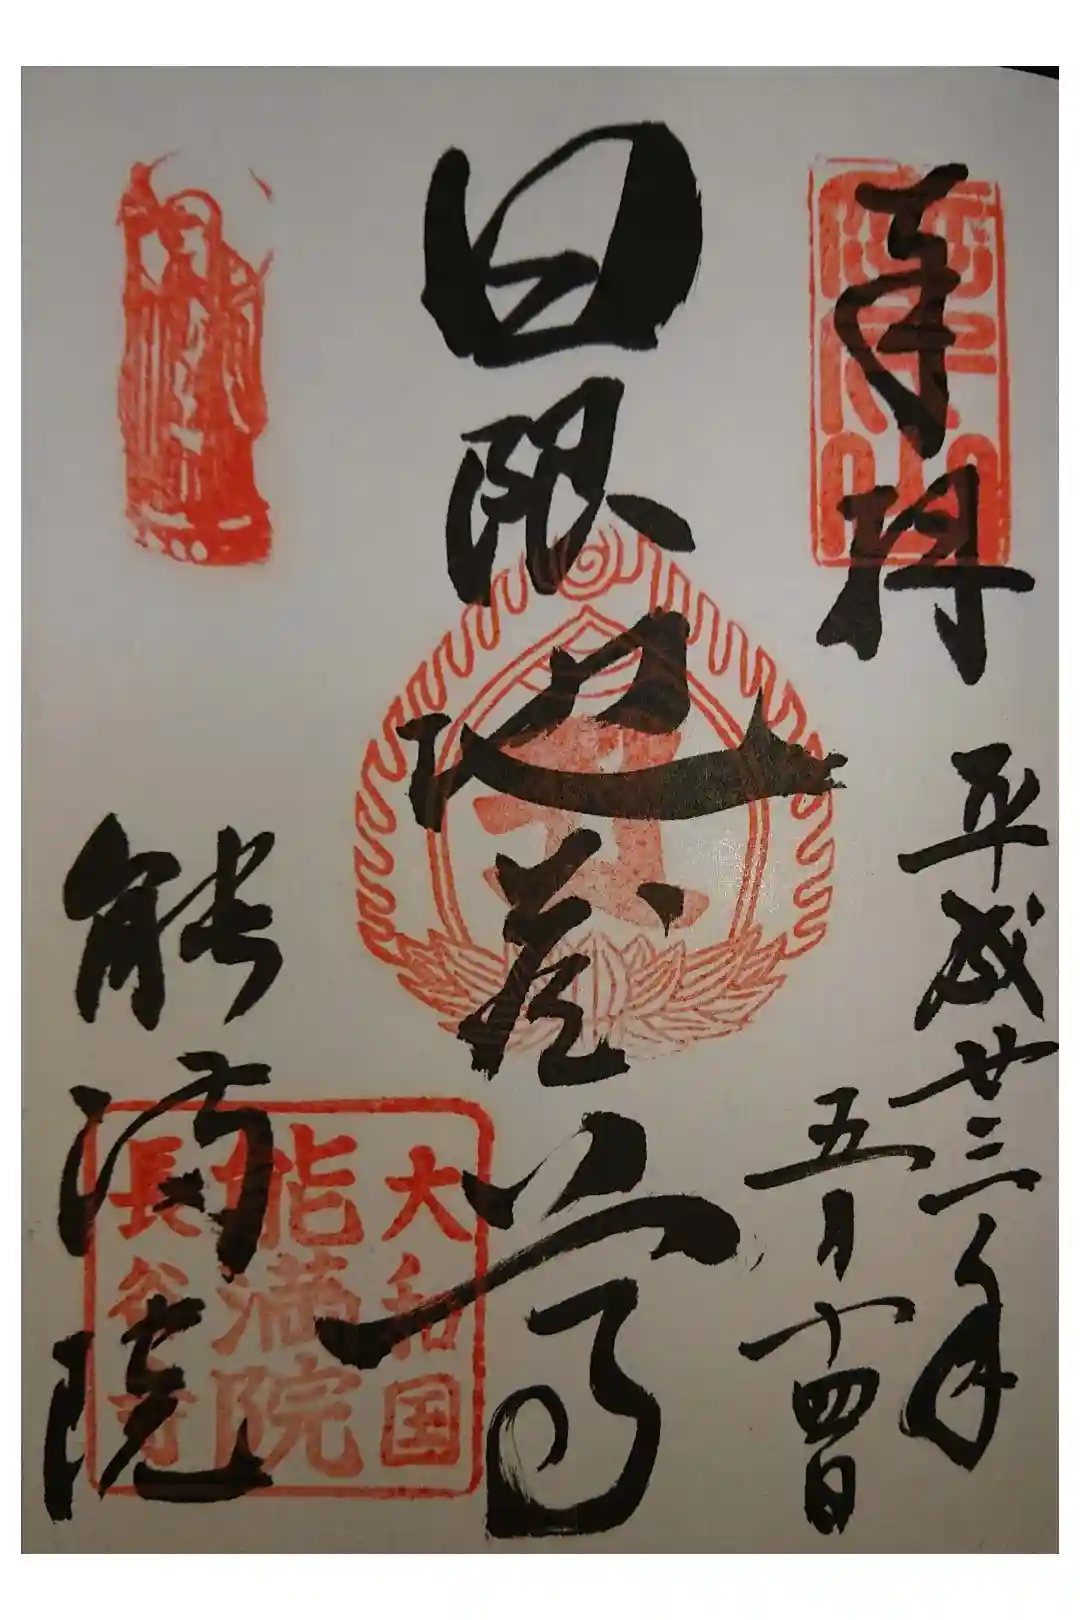 奉拝
平成廿三年
五月十四日
日限地蔵尊
能満院
大和国
能満院
長谷寺